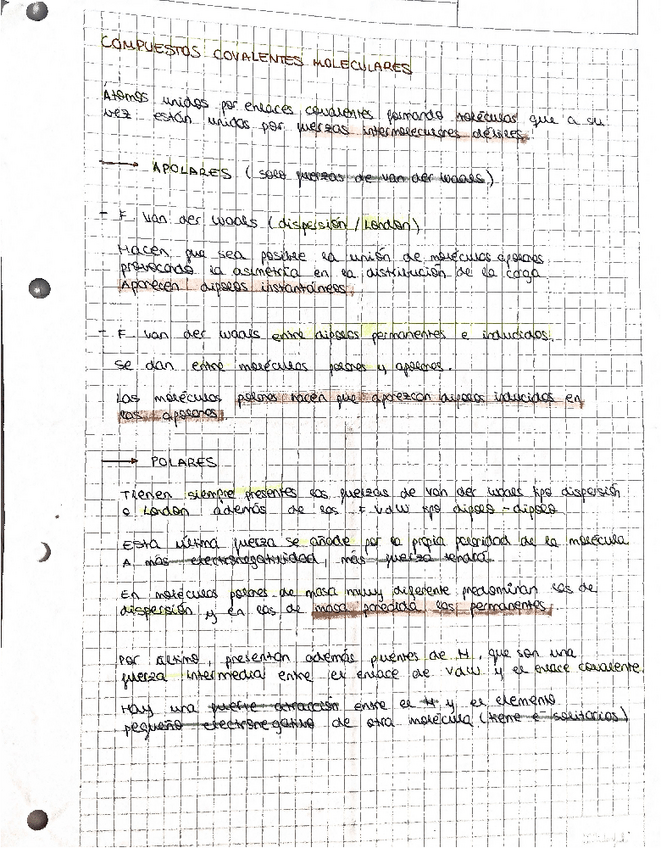 COMPUESTOS COVALENTES MOLECULARES
Átomos unidos por enlaces covalentes formando moléculas que a su
vez están unidos por fuerzas intermoleculares débiles.
→ APOLARES (solo fuerzas de van der waals)
- F van der waals (dispersión / London)
Hacen que sea posible la unión de moléculas apolares
provocado la asimetría en la distribución de la carga
Aparecen dipolos instantáneos.
- F van der waals entre dipolos permanentes e inducidos.
Se dan entre moléculas polares y apolares.
Las moléculas polares hacen que aparezcan dipolos inducidos en
las apolares.
→ POLARES
Tienen siempre presentes las fuerzas de van der waals tipo dispersión
o London además de las F VdW tipo dipolo-dipolo
Esta última fuerza se añade por la propia polaridad de la molécula
A más electronegatividad, más fuerza tendrá.
En moléculas polares de masa muuy diferente predominan las de
dispersión y en las de masa parecida las permanentes
Por último, presentan además puentes de H, que son una
fuerza intermedia entre el enlace de VdW y el enlace covalente.
Hay una fuerte atracción entre el H y el elemento
pequeño electronegativo de otra molécula (tiene e solitarios)